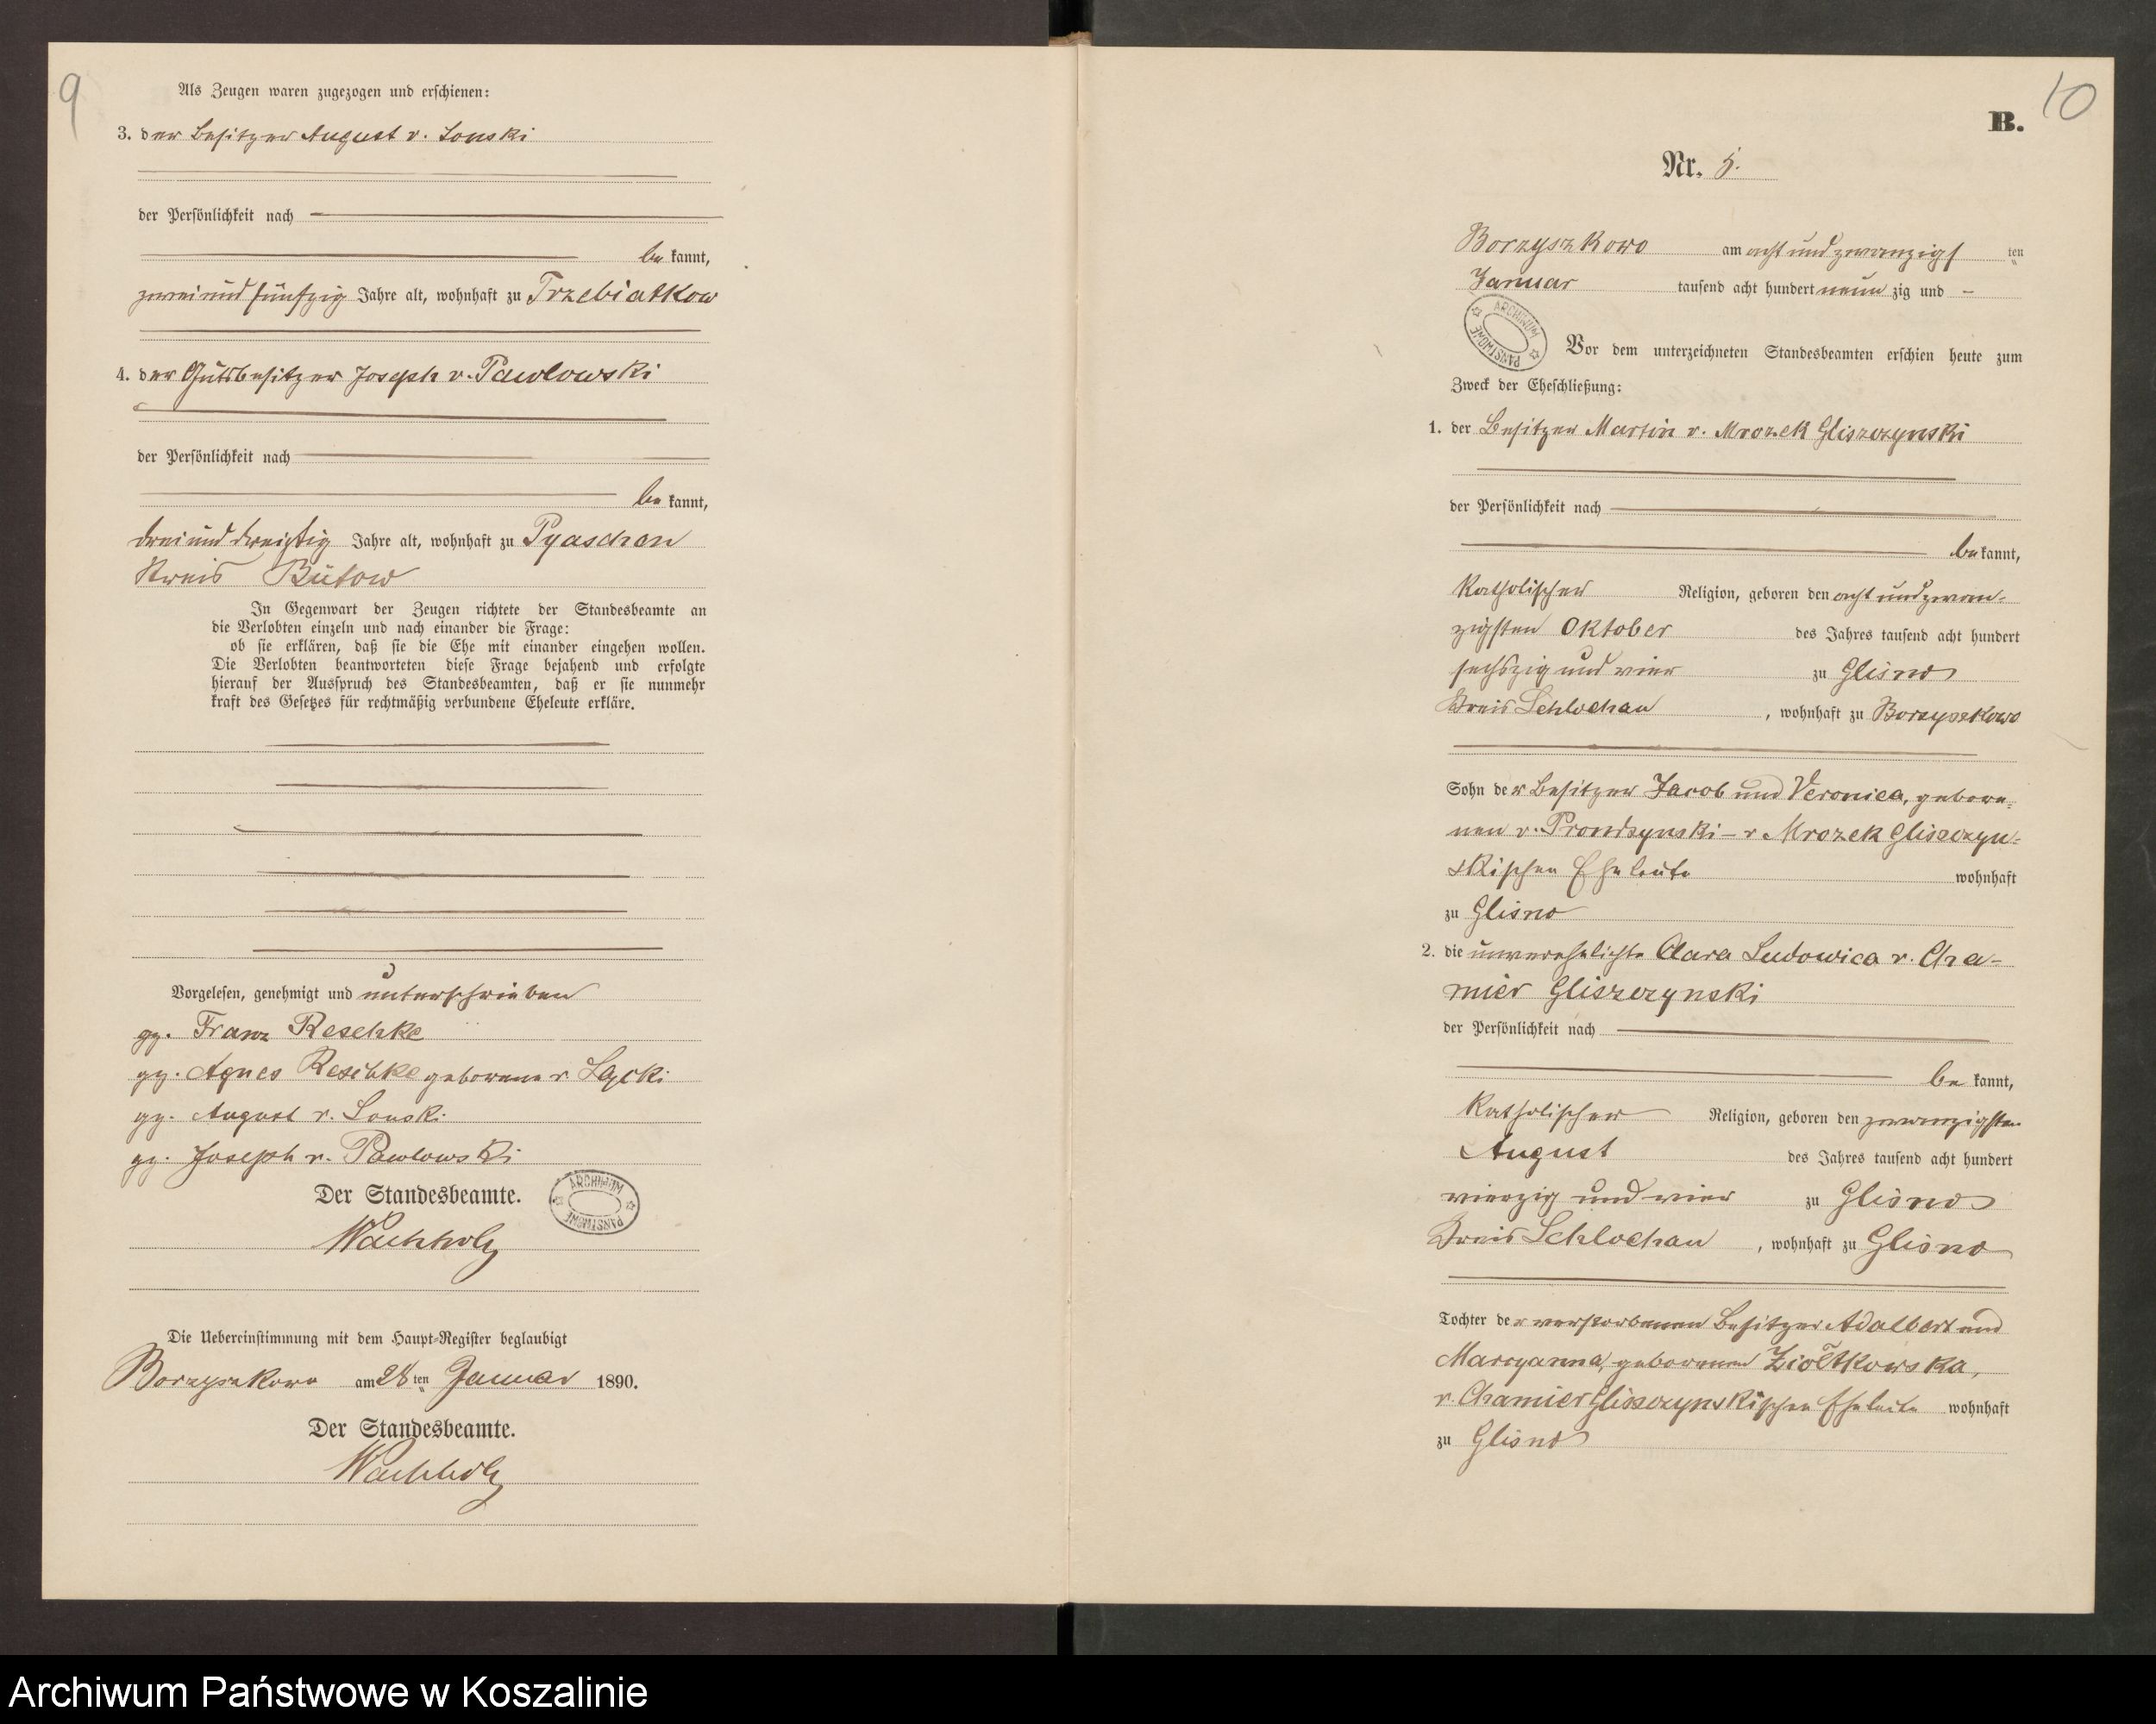 9
Als Zeugen waren zugezogen und erschienen:
3. der Besitzer August v. Lonski
der Persönlichkeit nach
be kannt,
zwei und fünfzig Jahre alt, wohnhaft zu Trzebiatkow
4. der Gutsbesitzer Joseph v. Pawlowski
der Persönlichkeit nach
be kannt,
drei und dreißig Jahre alt, wohnhaft zu Pyaschen
Kreis Bütow
In Gegenwart der Zeugen richtete der Standesbeamte an
die Verlobten einzeln und nach einander die Frage:
ob sie erklären, daß sie die Ehe mit einander eingehen wollen.
Die Verlobten beantworteten diese Frage bejahend und erfolgte
hierauf der Ausspruch des Standesbeamten, daß er sie nunmehr
kraft des Gesetzes für rechtmäßig verbundene Eheleute erkläre.
Vorgelesen, genehmigt und unterschrieben
gz. Franz Reschke
gz. Agnes Reschke geborene v Lącki
gz. August v. Lonski
gz. Joseph v. Pawlowski
Der Standesbeamte.
ARCHIWUM PAŃSTWOWE
Wachholz
Die Uebereinstimmung mit dem Haupt-Register beglaubigt
Borzyszkowo am 28 ten Januar 1890.
Der Standesbeamte.
Wachholz
10
B.
Nr. 5.
Borzyszkowo am acht und zwanzigs ten
Januar tausend acht hundert neun zig und –
ARCHIWUM PAŃSTWOWE
Vor dem unterzeichneten Standesbeamten erschien heute zum
Zweck der Eheschließung:
1. der Besitzer Martin v. Mrozek Gliszczynski
der Persönlichkeit nach
be kannt,
katholischer Religion, geboren den acht und zwan-
zigsten Oktober des Jahres tausend acht hundert
sechszig und vier zu Glisno
Kreis Schlochau, wohnhaft zu Borzyszkowo
Sohn der Besitzer Jacob und Veronica, gebore-
nen v. Prondzynski – v Mrozek Gliszczyn-
skischen Eheleute wohnhaft
zu Glisno
2. die unverehelichte Clara Ludowica v. Cha-
mier Gliszczynski
der Persönlichkeit nach
be kannt,
katholischer Religion, geboren den zwanzigsten
August des Jahres tausend acht hundert
vierzig und vier zu Glisno
Kreis Schlochau, wohnhaft zu Glisno
Tochter der verstorbenen Besitzer Adalbert und
Maryanna, geborenen Ziołtkowska,
v. Chamier Gliszczynskischen Eheleute wohnhaft
zu Glisno
Archiwum Państwowe w Koszalinie